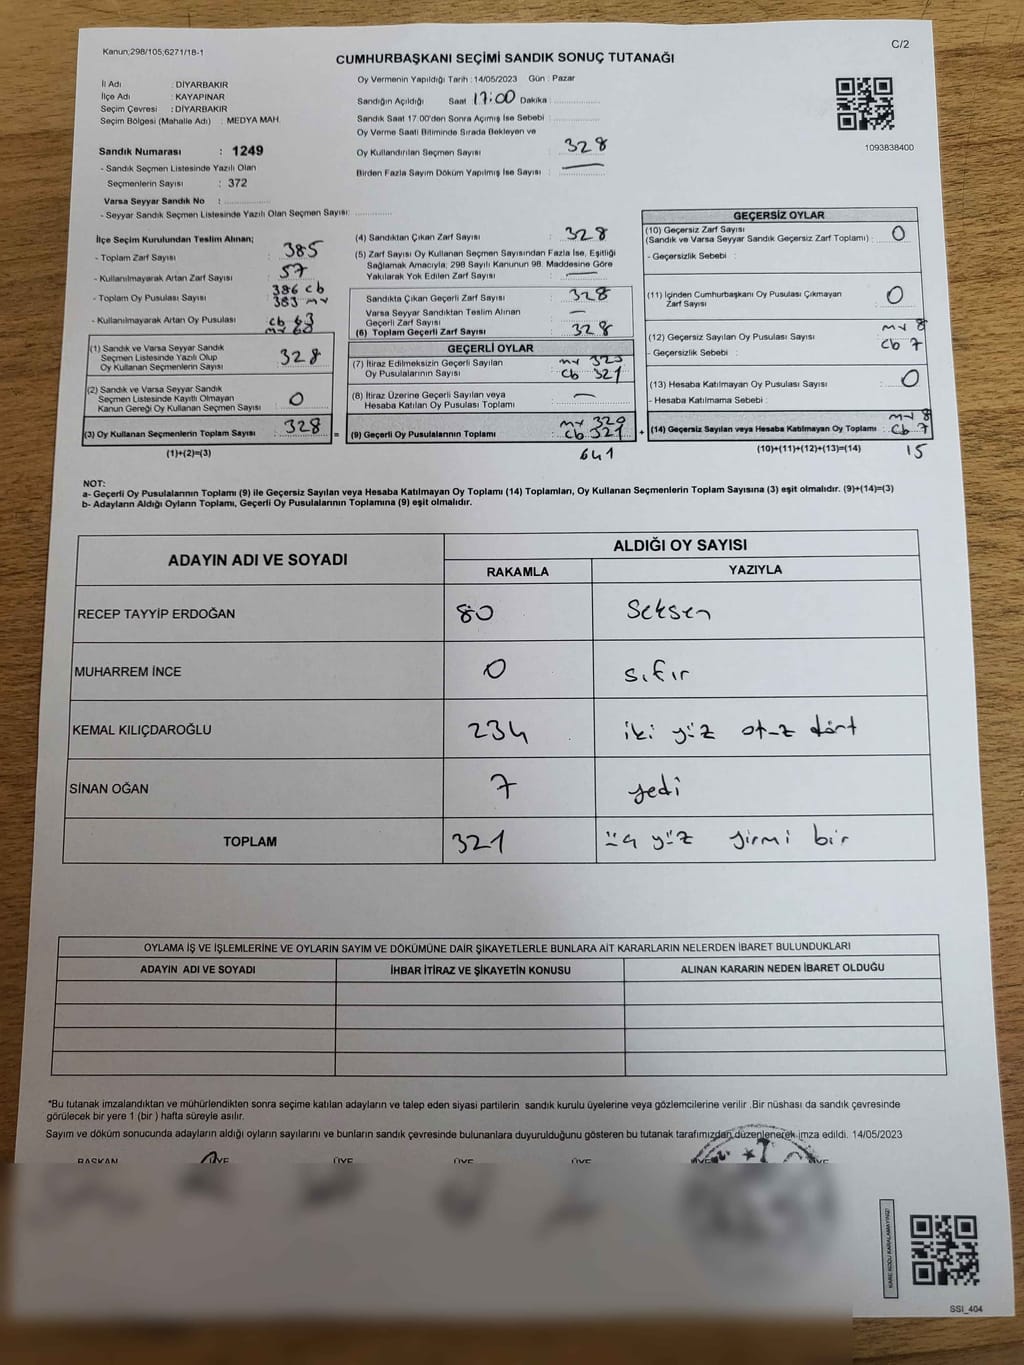 Kanun;298/105,6271/18-1
C/2
CUMHURBAŞKANI SEÇİMİ SANDIK SONUÇ TUTANAĞI
İl Adı : DİYARBAKIR
İlçe Adı : KAYAPINAR
Seçim Çevresi : DİYARBAKIR
Seçim Bölgesi (Mahalle Adı) : MEDYA MAH.
Oy Vermenin Yapıldığı Tarih : 14/05/2023 Gün : Pazar
Sandığın Açıldığı Saat 17:00 Dakika :
Sandık Saat 17.00'den Sonra Açımış İse Sebebi :
Oy Verme Saati Bitiminde Sırada Bekleyen ve
Oy Kullandırılan Seçmen Sayısı : 328
Birden Fazla Sayım Döküm Yapılmış İse Sayısı : —
1093838400
Sandık Numarası : 1249
- Sandık Seçmen Listesinde Yazılı Olan
Seçmenlerin Sayısı : 372
Varsa Seyyar Sandık No :
- Seyyar Sandık Seçmen Listesinde Yazılı Olan Seçmen Sayısı:
İlçe Seçim Kurulundan Teslim Alınan;
- Toplam Zarf Sayısı : 385
- Kullanılmayarak Artan Zarf Sayısı : 57
- Toplam Oy Pusulası Sayısı : 386 cb
383 mv
- Kullanılmayarak Artan Oy Pusulası : cb 63
(1) Sandık ve Varsa Seyyar Sandık
Seçmen Listesinde Yazılı Olup
Oy Kullanan Seçmenlerin Sayısı : 328
(2) Sandık ve Varsa Seyyar Sandık
Seçmen Listesinde Kayıtlı Olmayan
Kanun Gereği Oy Kullanan Seçmen Sayısı : 0
(3) Oy Kullanan Seçmenlerin Toplam Sayısı : 328
(1)+(2)=(3)
(4) Sandıktan Çıkan Zarf Sayısı : 328
(5) Zarf Sayısı Oy Kullanan Seçmen Sayısından Fazla İse, Eşitliği
Sağlamak Amacıyla; 298 Sayılı Kanunun 98. Maddesine Göre
Yakılarak Yok Edilen Zarf Sayısı : —
Sandıkta Çıkan Geçerli Zarf Sayısı : 328
Varsa Seyyar Sandıktan Teslim Alınan
Geçerli Zarf Sayısı : —
(6) Toplam Geçerli Zarf Sayısı : 328
GEÇERLİ OYLAR
(7) İtiraz Edilmeksizin Geçerli Sayılan
Oy Pusulalarının Sayısı : cb 321
(8) İtiraz Üzerine Geçerli Sayılan veya
Hesaba Katılan Oy Pusulası Toplamı : —
= (9) Geçerli Oy Pusulalarının Toplamı : mv 320
cb 321
641
GEÇERSİZ OYLAR
(10) Geçersiz Zarf Sayısı
(Sandık ve Varsa Seyyar Sandık Geçersiz Zarf Toplamı) : 0
- Geçersizlik Sebebi :
(11) İçinden Cumhurbaşkanı Oy Pusulası Çıkmayan
Zarf Sayısı : 0
(12) Geçersiz Sayılan Oy Pusulası Sayısı : mv 8
cb 7
- Geçersizlik Sebebi :
(13) Hesaba Katılmayan Oy Pusulası Sayısı : 0
- Hesaba Katılmama Sebebi :
+ (14) Geçersiz Sayılan veya Hesaba Katılmayan Oy Toplamı : mv 8
cb 7
(10)+(11)+(12)+(13)=(14) 15
NOT:
a- Geçerli Oy Pusulalarının Toplamı (9) ile Geçersiz Sayılan veya Hesaba Katılmayan Oy Toplamı (14) Toplamları, Oy Kullanan Seçmenlerin Toplam Sayısına (3) eşit olmalıdır. (9)+(14)=(3)
b- Adayların Aldığı Oyların Toplamı, Geçerli Oy Pusulalarının Toplamına (9) eşit olmalıdır.
ADAYIN ADI VE SOYADI
ALDIĞI OY SAYISI
RAKAMLA YAZIYLA
RECEP TAYYİP ERDOĞAN 80 Seksen
MUHARREM İNCE 0 sıfır
KEMAL KILIÇDAROĞLU 234 iki yüz otuz dört
SİNAN OĞAN 7 yedi
TOPLAM 321 üç yüz yirmi bir
OYLAMA İŞ VE İŞLEMLERİNE VE OYLARIN SAYIM VE DÖKÜMÜNE DAİR ŞİKAYETLERLE BUNLARA AİT KARARLARIN NELERDEN İBARET BULUNDUKLARI
ADAYIN ADI VE SOYADI İHBAR İTİRAZ VE ŞİKAYETİN KONUSU ALINAN KARARIN NEDEN İBARET OLDUĞU
*Bu tutanak imzalandıktan ve mühürlendikten sonra seçime katılan adayların ve talep eden siyasi partilerin sandık kurulu üyelerine veya gözlemcilerine verilir .Bir nüshası da sandık çevresinde
görülecek bir yere 1 (bir ) hafta süreyle asılır.
Sayım ve döküm sonucunda adayların aldığı oyların sayılarını ve bunların sandık çevresinde bulunanlara duyurulduğunu gösteren bu tutanak tarafımızdan düzenlenerek imza edildi. 14/05/2023
BAŞKAN ÜYE ÜYE ÜYE ÜYE ÜYE ÜYE
KARE KODU KARALAMAYINIZ!
SSI_404